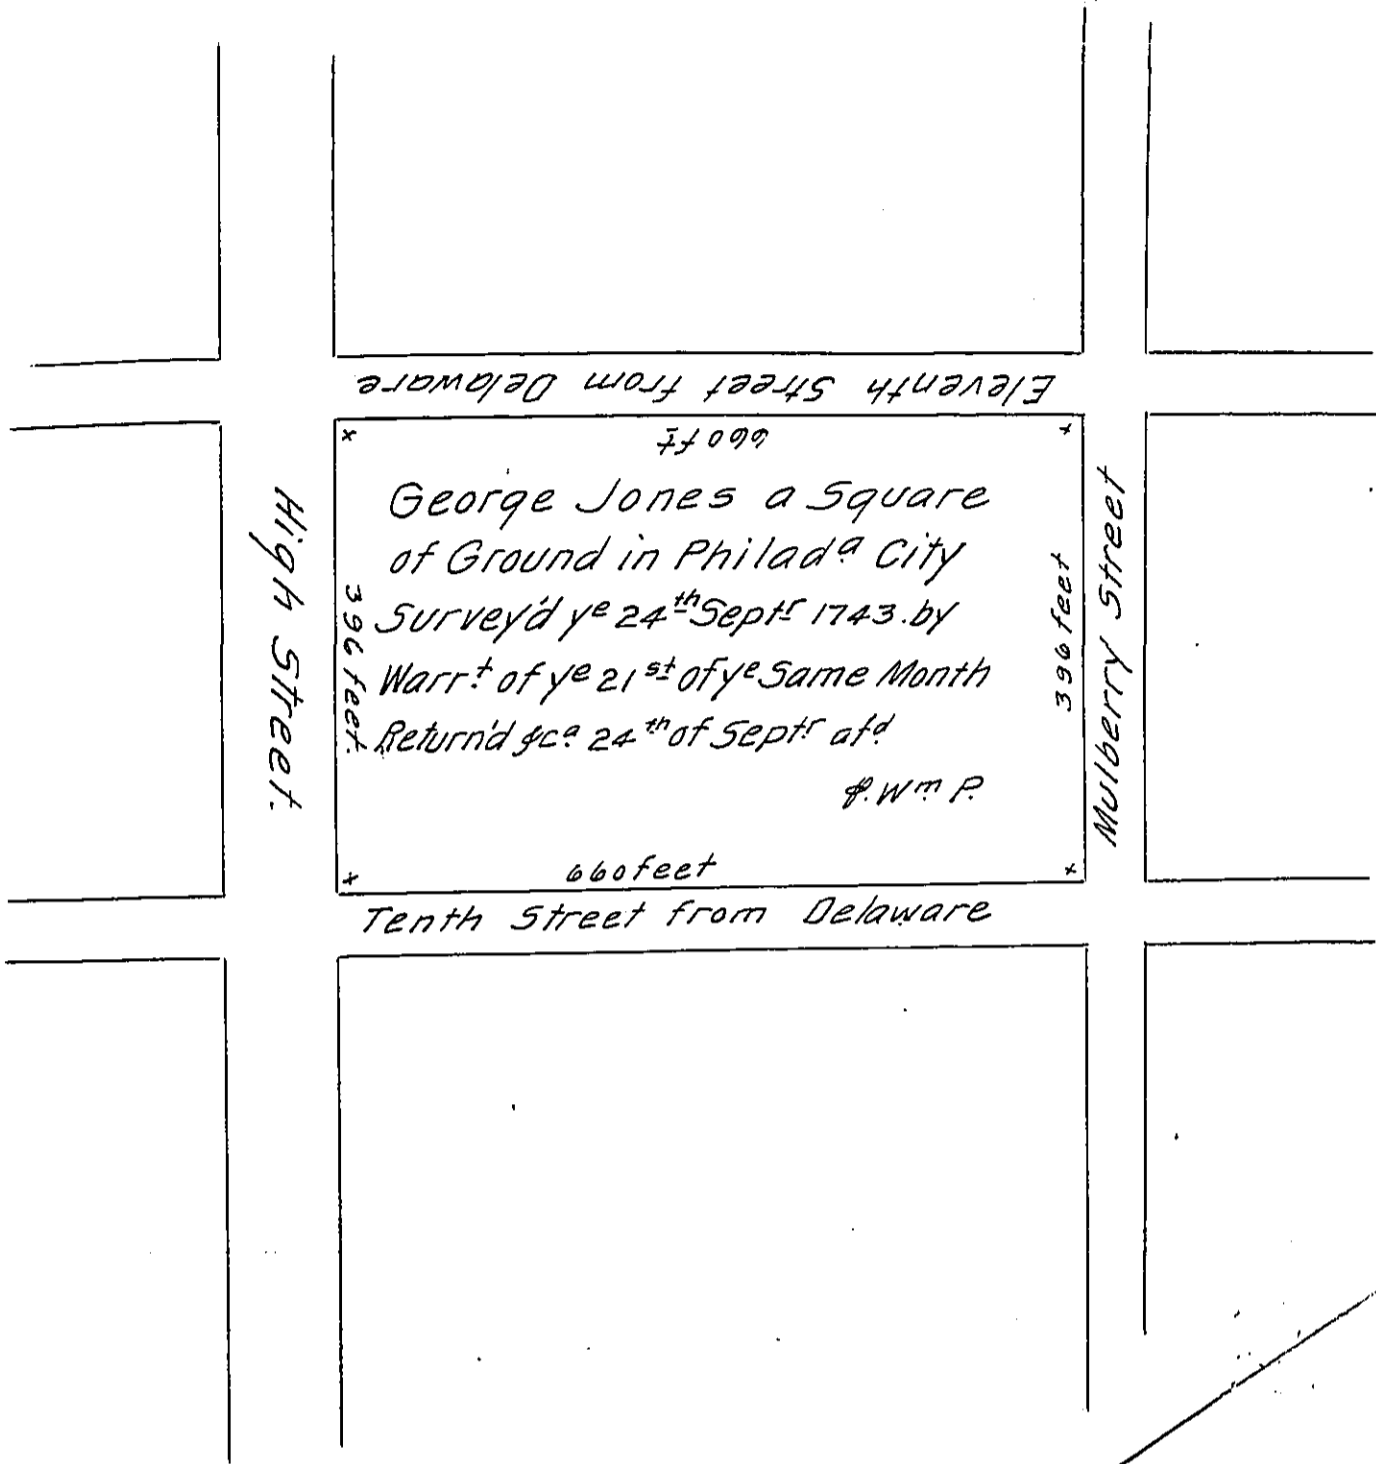 Eleventh Street from Delaware
660 ft
High Street.
396 feet.
George Jones a Square
of Ground in Philadᵃ City
Survey'd yᵉ 24ᵗʰ Septʳ 1743. by
Warrᵗ of yᵉ 21ˢᵗ of yᵉ Same Month
Return'd &cᵃ 24ᵗʰ of Septʳ afᵈ
⅌. Wᵐ P.
396 feet
Mulberry Street
660 feet
Tenth Street from Delaware